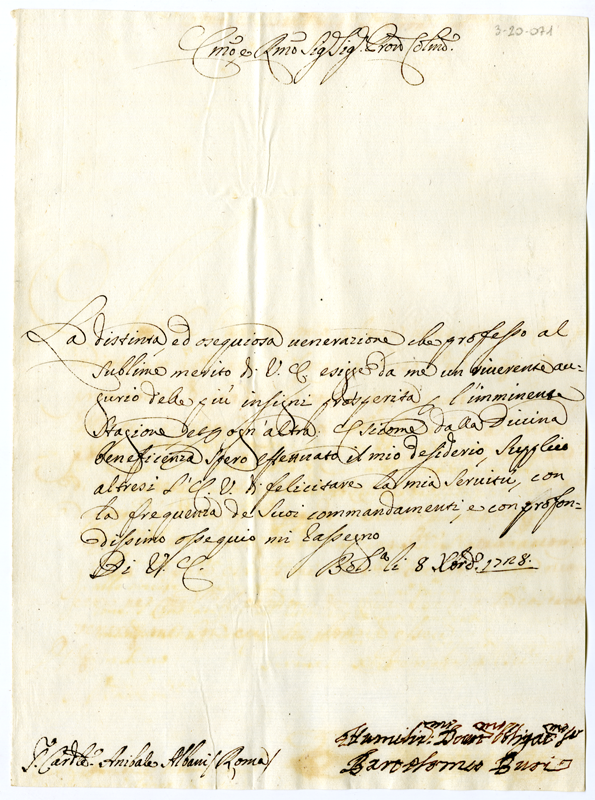 3-20-071
Emo e Rmo Sig Sig Pron Colmo
La distinta ed osequiosa uenerazione che professo al
sublime merito di V. E. esigge da me un riuerente au-
gurio delle piú insigni prosperità p l'imminente
Stagione, et p ogn'altra. E siccome dalla Diuina
beneficenza spero effettuato il mio desiderio, supplico
altresi l'E. V. di felicitare la mia seruitù, con
la frequenza de suoi commandamenti, e con profon-
dissimo ossequio mi rassegno
Di V. E. li 8 Xbre 1728.
Sr Cardle Anibale Albani (Roma)
Humilmo Deuo Obligatmo Sr
Bartolomeo Busi